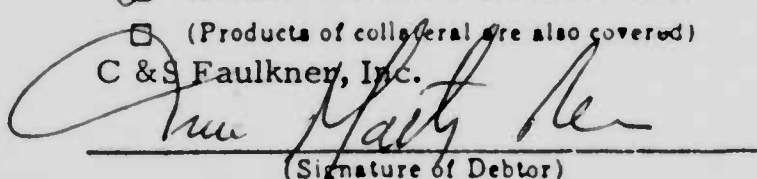 ☐ (Products of collateral are also covered)
C & S Faulkner, Inc.
(Signature of Debtor)